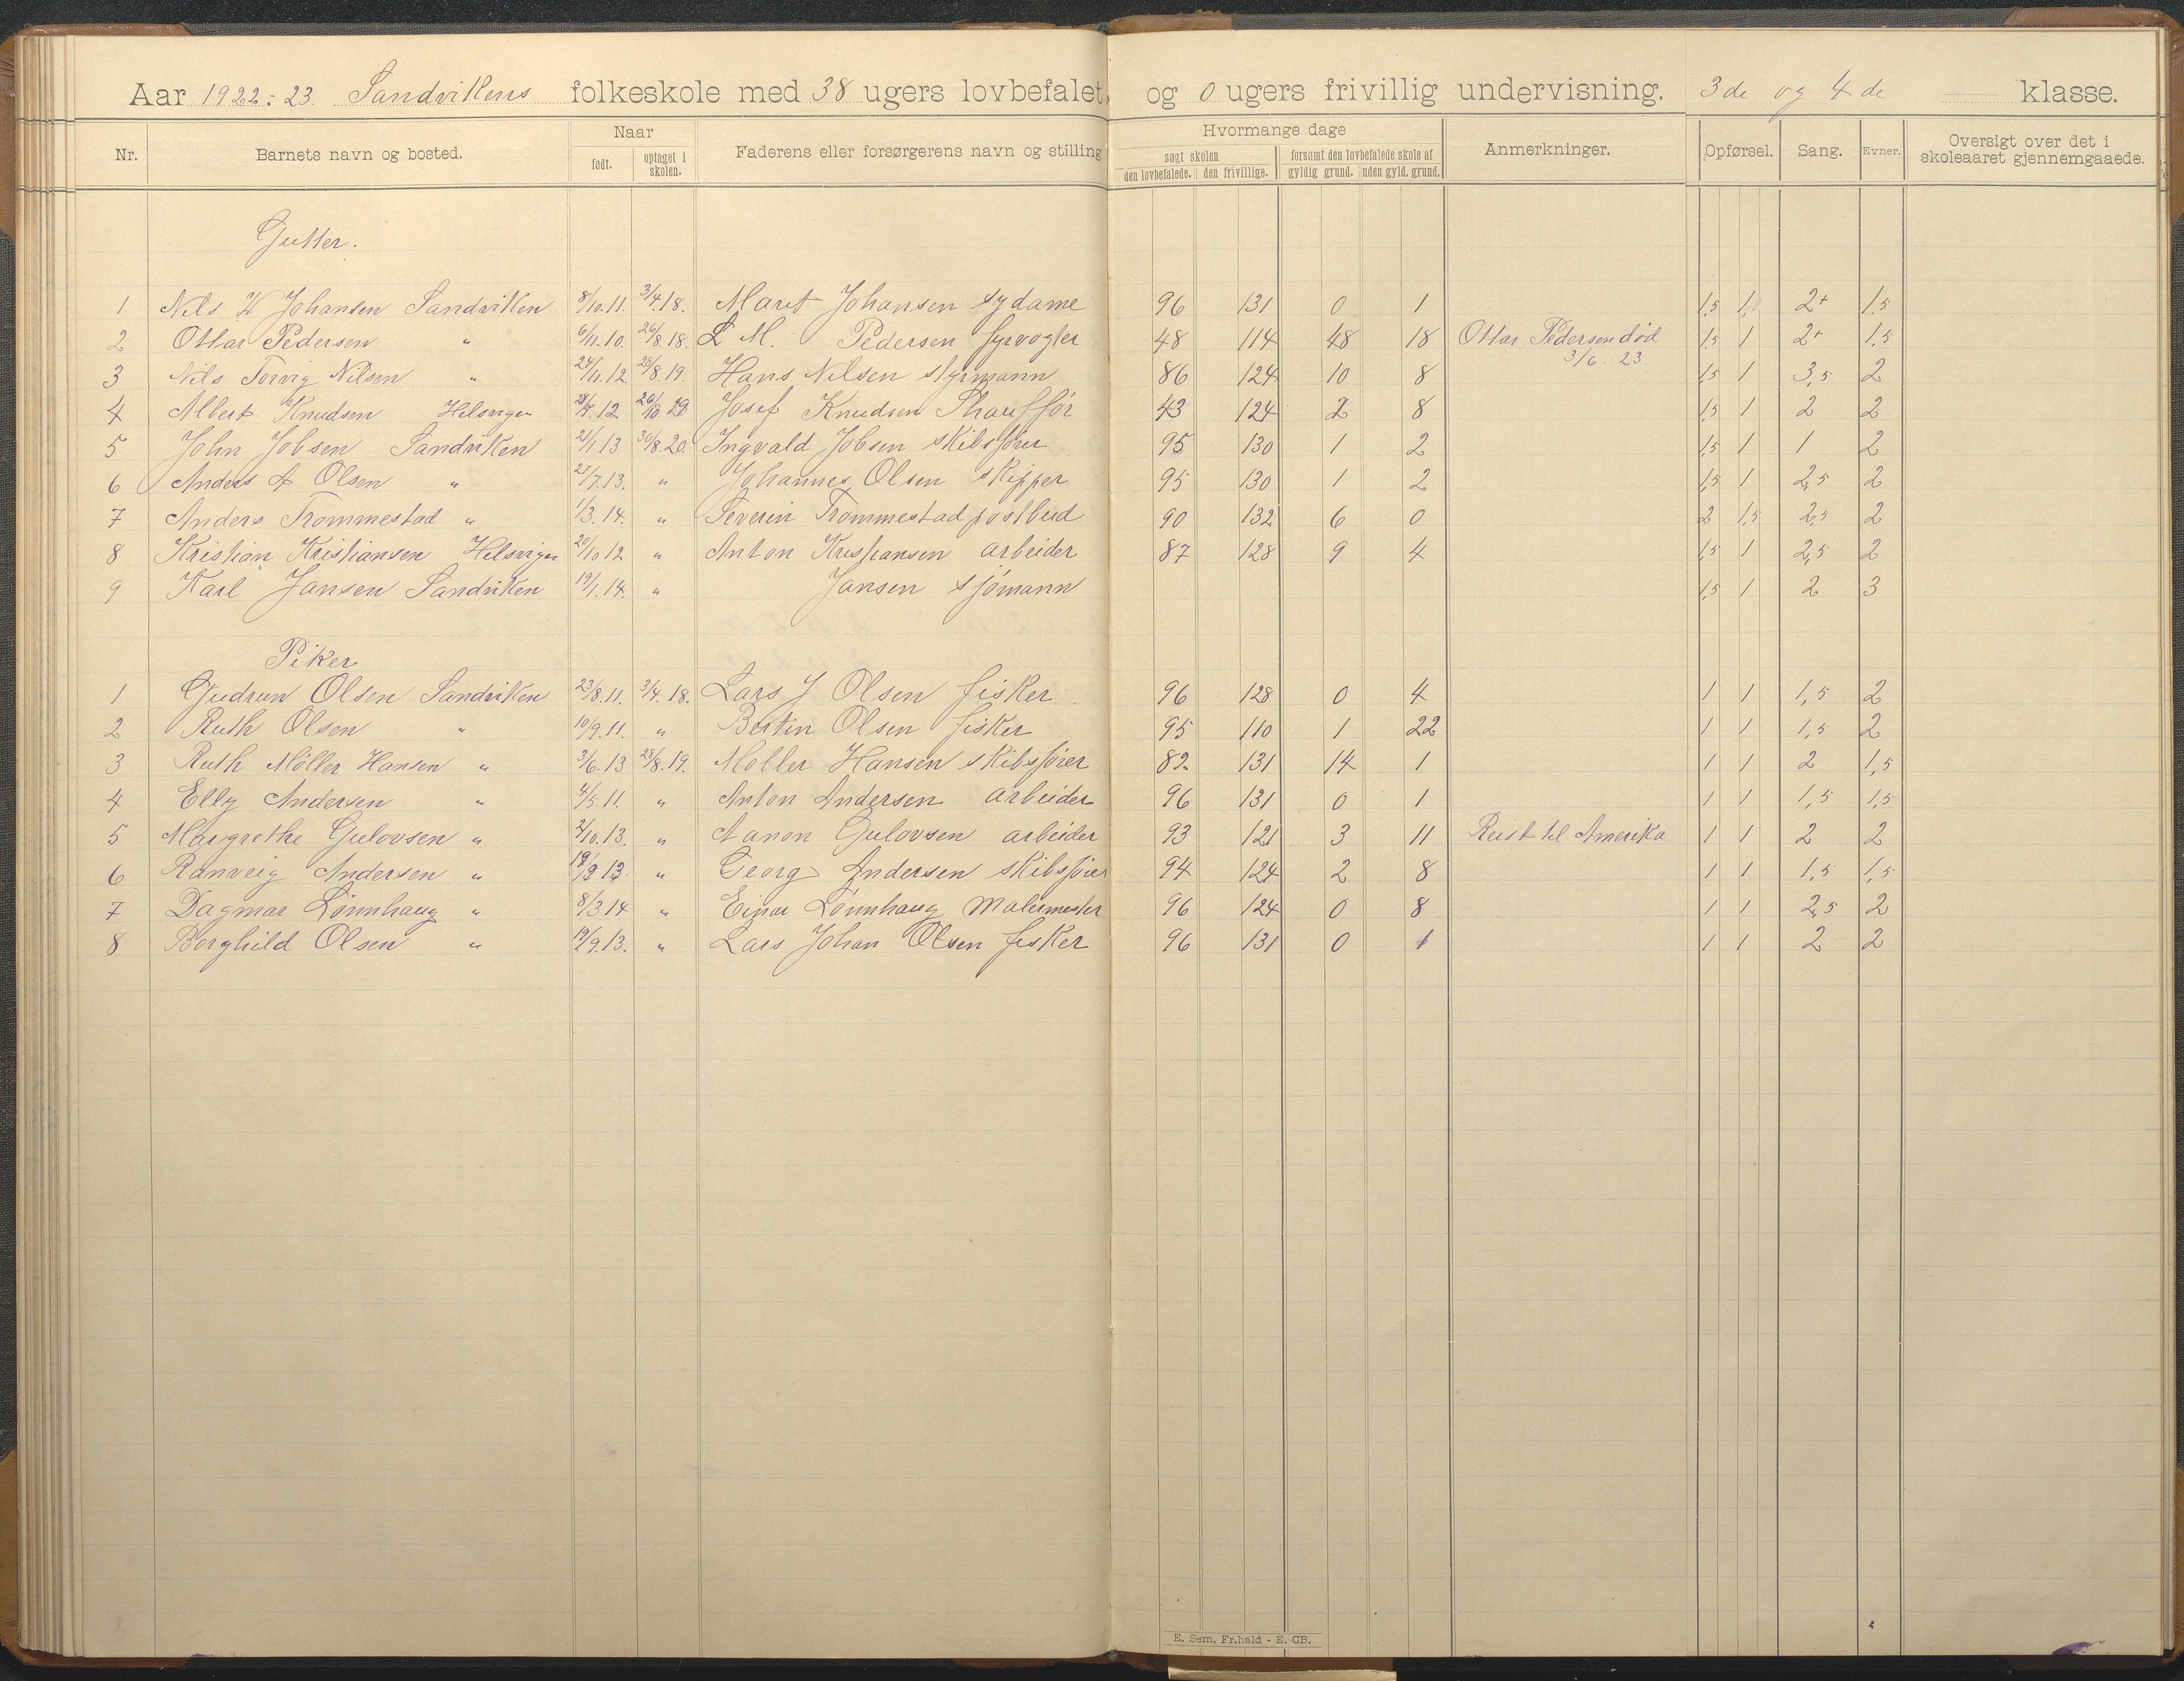 Aar 1922-23. Sandvikens folkeskole med 38 ugers lovbefalet, og 0 ugers frivillig undervisning. 3de og 4de klasse.
Nr. Barnets navn og bosted. Naar født. optaget i skolen. Faderens eller forsørgerens navn og stilling Hvormange dage søgt skolen den lovbefalede. den frivillige. forsømt den lovbefalede skole af gyldig grund. uden gyld. grund. Anmerkninger. Opførsel. Sang. Evner. Oversigt over det i skoleaaret gjennemgaaede.
Gutter.
1 Nils K Johansen Sandviken 8/10.11. 3/4.18. Marit Johansen sydame 96 131 0 1 1,5 1, 2+ 1,5
2 Ottar Pedersen " 6/11.10. 26/8.18. L M. Pedersen fyrvogter 48 114 48 18 Ottar Pedersen død 1,5 1 2+ 1,5
3/6. 23
3 Nils Torvig Nilsen " 24/11.12. 28/8.19. Hans Nilsen styrmann 86 124 10 8 1,5 1 3,5 2
4 Albert Knudsen Helsvigen 28/8.12 26/8.19 Josef Knudsen Shauffør 43 124 2 8 1,5 1 2 2
5 John Jobsen Sandviken 21/1.13 30/8.20. Ingvald Jobsen skibsfører 95 130 1 2 1,5 1 1 2
6 Anders A Olsen " 27/7.13. " Johannes Olsen skipper 95 130 1 2 1,5 1 2,5 2
7 Anders Trommestad " 1/3.14. " Severin Trommestad postbud 90 132 6 0 2 1,5 2,5 2
8 Kristian Kristiansen Helsvigen 20/10 12 " Anton Kristiansen arbeider 87 128 9 4 1,5 1 2,5 2
9 Karl Jansen Sandviken 19/1.14. " Jansen sjømann 1,5 1 2 3
Piker
1 Gudrun Olsen Sandviken 23/8.11. 3/4.18. Lars J Olsen fisker 96 128 0 4 1 1 1,5 2
2 Ruth Olsen " 10/9.11. " Bertin Olsen fisker 95 110 1 22 1 1 1,5 2
3 Ruth Møller Hansen " 3/6.13 28/8.19. Møller Hansen skibsfører 82 131 14 1 1 1 2 1,5
4 Elly Andersen " 4/5.11. " Anton Andersen arbeider 96 131 0 1 1 1 1,5 1,5
5 Margrethe Gulovsen " 2/10.13. " Aanon Gulovsen arbeider 93 121 3 11 Reist til Amerika 1 1 2 2
6 Ranveig Andersen " 19/9 13. " Georg Andersen skibsfører 94 124 2 8 1 1 1,5 1,5
7 Dagmar Lønnhaug " 8/3 14 " Einar Lønnhaug Malermester 96 124 0 8 1 1 2,5 2
8 Borghild Olsen " 19/9.13. " Lars Johan Olsen fisker 96 131 0 1 1 1 2 2
E. Sem, Fr.hald - E. CB.